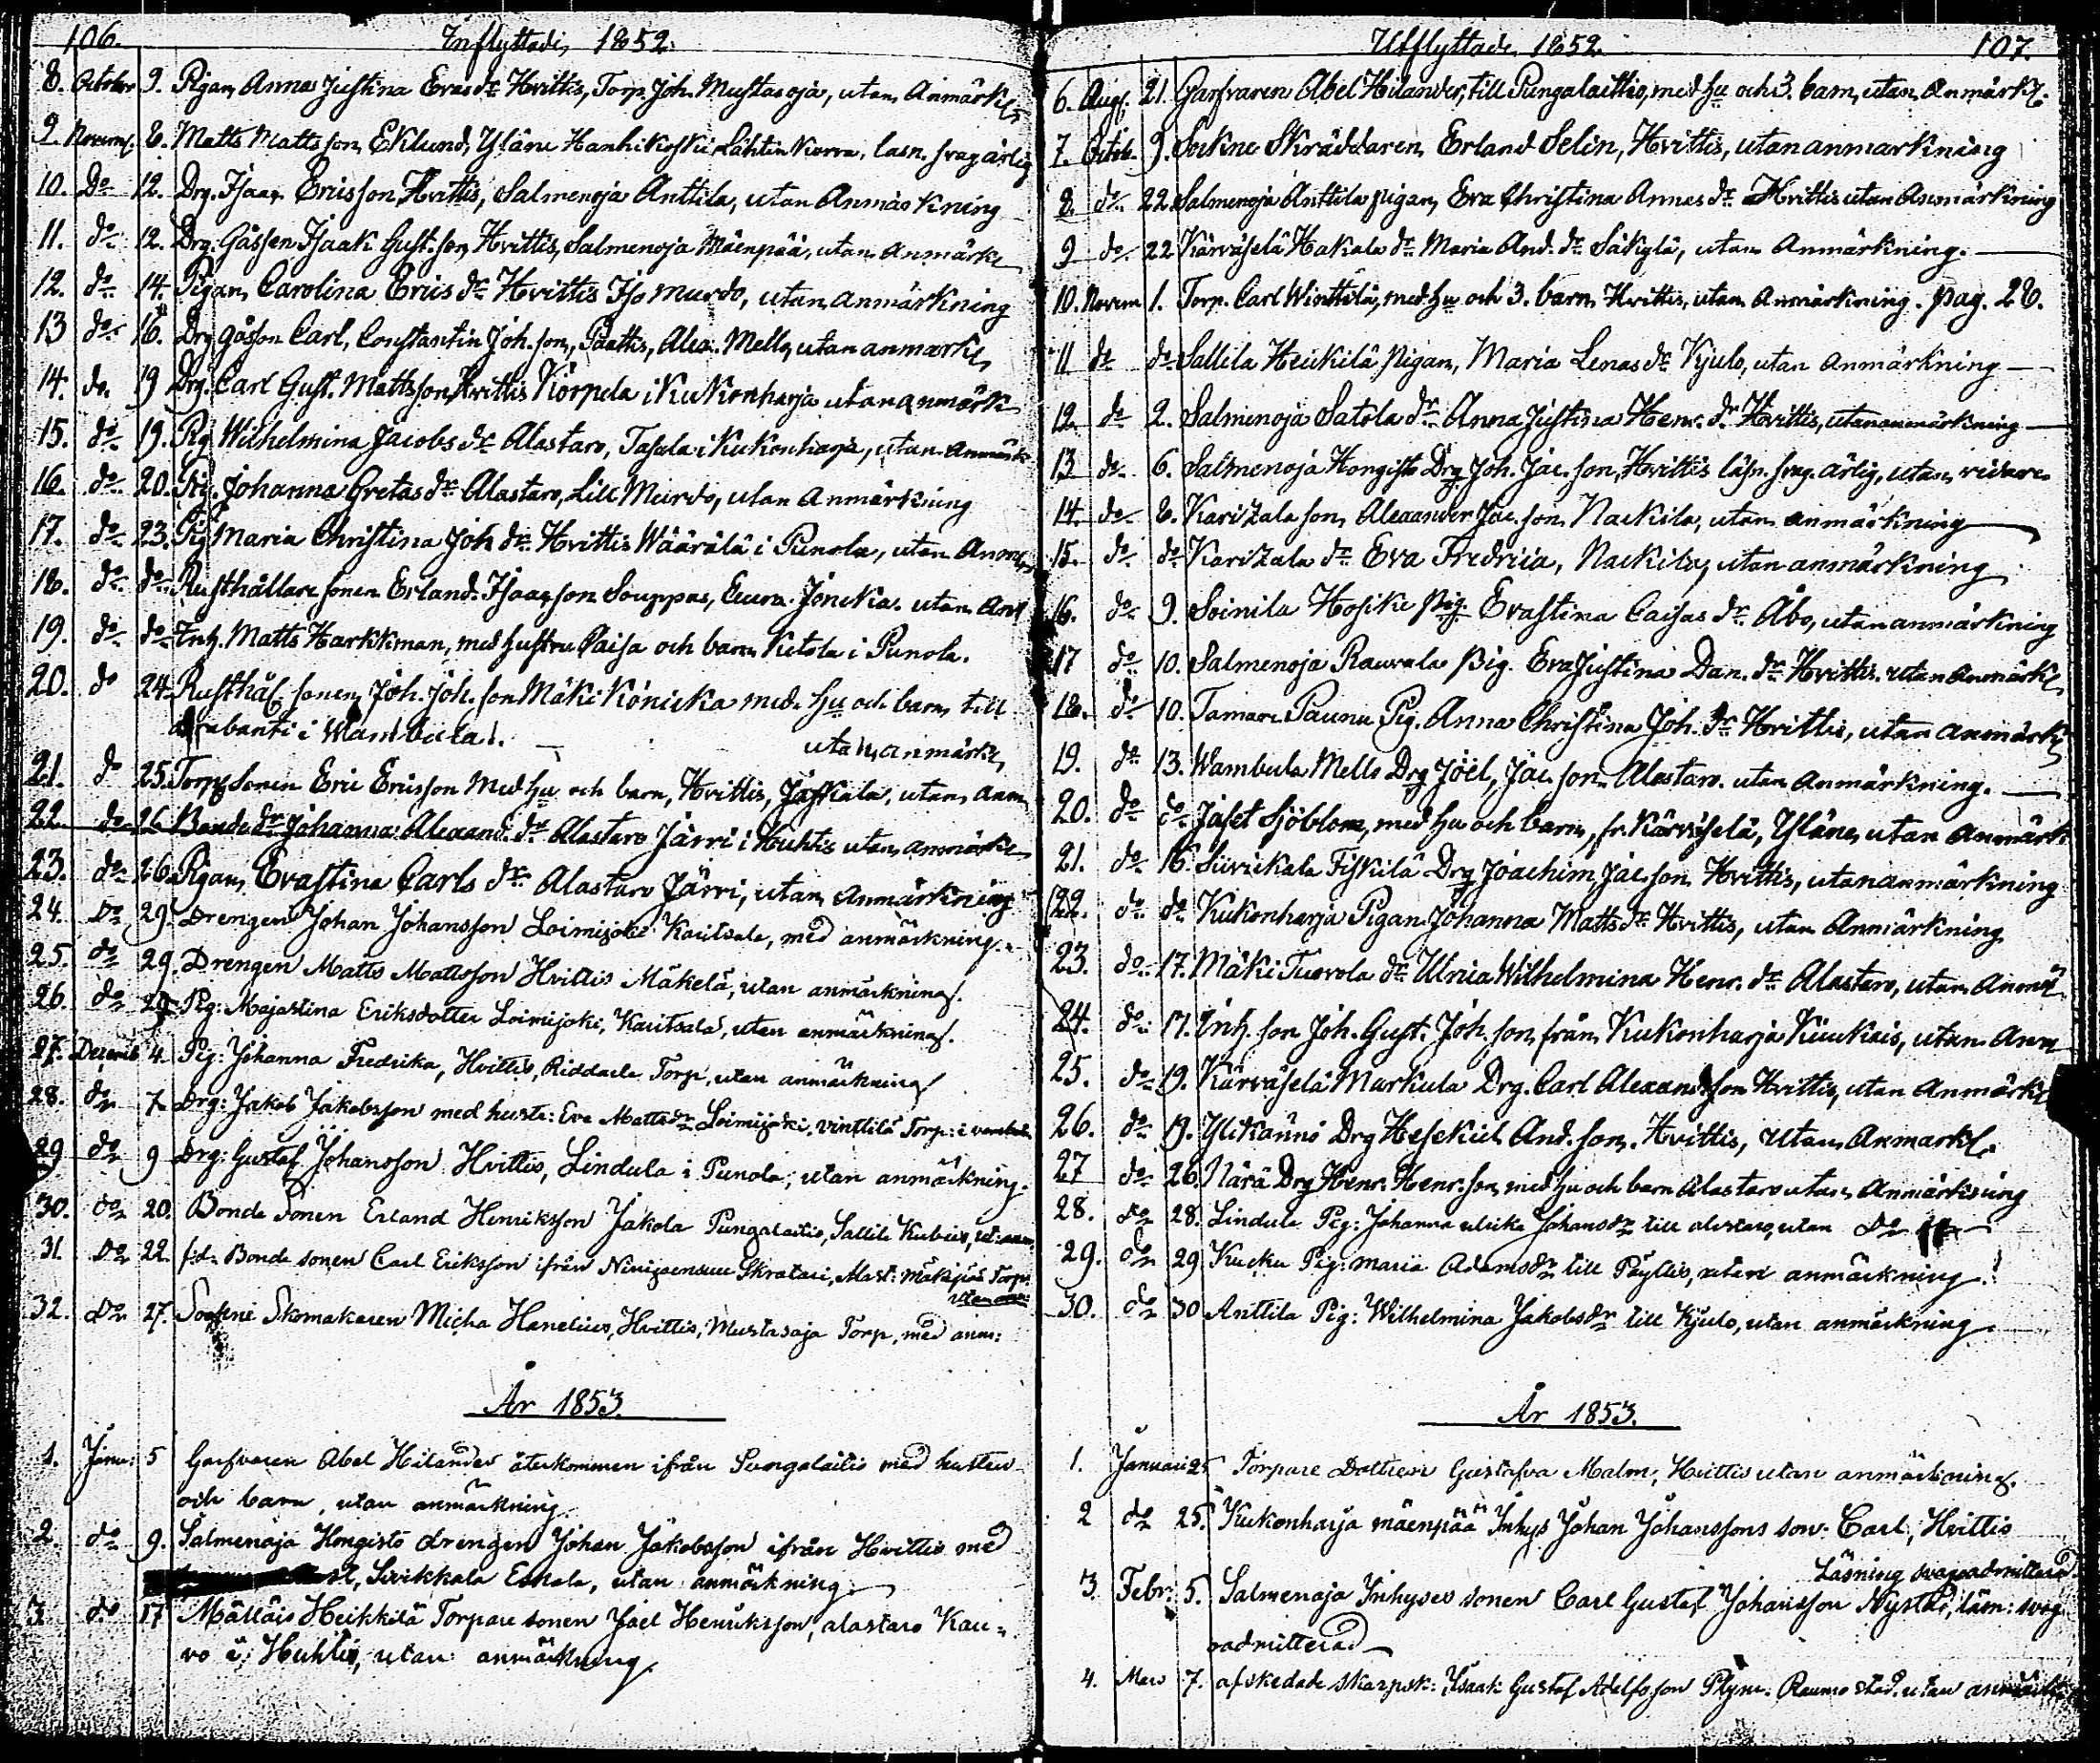 106. Inflyttade, 1852.
8. October 9. Pigan Anna Justina Evas dr Hvittis, Torp. Joh. Mustasoja, utan Anmärkn
9. Novemb. 8. Matts Mattsson Eklund, Yläne Hanhikoski Lähtinkorva, läsn. svag ärlig
10. Do 12. Drg. Isaac Ericsson Hvittis, Salmenoja Anttila, utan Anmärkning
11. do 12. Drg. Gåssen Isaak Gust.son Hvittis, Salmenoja Mäenpää, utan Anmärkn
12. do 14. Pigan Carolina Erics dr Hvittis Iso Murdo, utan anmärkning
13 do 16. Drg gåsson Carl Constantin Joh.son, Paattis, Alex. Mello, utan anmärkn
14. do. 19 Drg. Carl Gust. Mattsson, Hvittis Körpela i Kukonharja utan anmärkn
15. do. 19. Pig Wilhelmina Jacobs dr Alastaro, Tasala i Kukonharja, utan Anmärk
16. do. 20. Pig. Johanna Gretas dr Alastaro, Lill Murdo, utan Anmärkning
17. do. 23. Pig Maria Christina Joh dr Hvittis Wäärälä i Punola, utan Anm
18. do do Rusthållare sonen Erland Isaacsson Souppas, Eura Jonicka utan Anm
19. do do Inh. Matts Harkkman, med hustru Caisa och barn Ketola i Punola.
20. do 24. Rusthål. sonen Joh. Joh.son Mäki Könicka med hu och barn till
Drabanti i Wambula. utan anmärkn
21. do 25. Torp. Sonen Eric Ericsson med hu och barn, Hvittis, Jaskala, utan anm
22. do 26 Bonde dr Johanna Alexand. dr Alastaro Järri i Huhtis utan anmärkn
23. do 26. Pigan Evastina Carls dr Alastaro Järri, utan Anmärkning
24. Do 29. Drengen Johan Johansson Loimijoki Karitsala, med anmärkning.
25. do 29. Drengen Matts Mattsson Hvittis Mäkelä, utan anmärkning.
26. do 29 Pig: Majastina Eriksdotter Loimijoki, Karitsala, utan anmärkning.
27. Decemb 4. Pig: Johanna Fredrika, Hvittis, Riddarla Torp, utan anmärkning
28. do 7. Drg: Jakob Jakobsson med hustr: Eva Mattsdr Loimijoki, Vinttilä Torp: i
29 do 9 Drg: Gustaf Johansson Hvittis, Lindula i Punola, utan anmärkning.
30. do 20. Bonde Sonen Erland Henriksson Jakola Pungalaitis, Sallila
31. Do 22. f.d. Bonde sonen Carl Eriksson ifrån Skratari, Alast: Mäkipää Torp.
utan anm:
32. Do 27. Sockne Skomakaren Micha Hanelius, Hvittis, Mustasaja Torp, med anm:
År 1853.
1. Janu: 5 Garfvaren Abel Hilander återkommen ifrån Pungalaitis med hustru
och barn, utan anmärkning.
2. do 9. Salmenaja Hongisto drengen Johan Jakobsson ifrån Hvittis med
Sirikkala Eskala, utan anmärkning
3. do 17 Mälläis Heikkilä Torpare sonen Joel Henriksson, alastaro Kau-
vo i Huhtis, utan anmärkning.
Utflyttade 1852. 107.
6. Aug. 21. Garfvaren Abel Hilander, till Pungalaittis, med hu och 3. barn, utan Anmärkn.
7. Octob. 9. Sockne Skräddaren Erland Selin, Hvittis, utan anmärkning
8. do. 22. Salmenoja Anttila pigan Eva Christina Annas dr Hvittis utan Anmärkning
9 do 22 Kärväselä Hakala dr Maria And. dr Säkylä, utan Anmärkning.
10. Novem 1. Torp. Carl Winttilä, med hu och 3. barn Hvittis, utan Anmärkning. pag. 28.
11 do do Sallila Heickilä pigan, Maria Lenas dr Kjulo, utan Anmärkning
12. do 2. Salmenoja Satola dr Anna Justina Henr. dr Hvittis, utan anmärkning
13 do 6. Salmenoja Hongisto Drg Joh. Jac.son, Hvittis läsn. svag. ärlig, utan vidare
14. do 8. Karitzala son Alexander Jac.son Nackila, utan anmärkning
15. do do Karitzala dr Eva Fredrica, Nackila, utan anmärkning
16. do 9. Soinila Hosike pig. Evastina Caisas dr Åbo, utan anmärkning
17 do 10. Salmenoja Rauvala pig. Eva Justina Dan. dr Hvittis, utan Anmärkn
18. do 10. Tamare Paunu Pig. Anna Christina Joh. dr Hvittis, utan anmärkn
19. do 13. Wambula Mello Drg Joel, Jac.son Alastaro. utan Anmärkning.
20. do do Jafet Sjöblom, med hu och barn, fr. Kärväselä, Yläne, utan Anmärk
21. do 16. Sirickala Fiskilä Drg Joachim Jac.son Hvittis, utan anmärkning
22. do do Kukonharja Pigan Johanna Matts dr Hvittis, utan Anmärkning
23. do 17. Mäki Tuorola dr Ulrica Wilhelmina Henr. dr Alastaro, utan Anmä
24. do 17. Inh. son Joh. Gust. Joh.son, från Kukonharja Kiuckais, utan Anm
25. do 19. Kärväselä Markula Drg. Carl Alexand.son Hvittis, utan Anmärkn
26. do 19. Ylikänni Drg Hesekiel And.son. Hvittis, utan Anmärkn.
27 do 26. Närä Drg Henr. Henr.son, med hu och barn Alastaro utan Anmärkning
28. do 28. Lindula Pig: Johanna ulrika Johansdr till alastaro, utan do
29. do 29 Kucku Pig: Maria Adamsdr till Pöyttis, utan anmärkning.
30. do 30 Anttila Pig: Wilhelmina Jakobsdr till Kjulo, utan anmärkning.
År 1853.
1. Januari 25 Torpare Dottren Gustafva Malm, Hvittis utan anmärkning.
2 do 25. Kukonharja mäenpää Inhys Johan Johanssons son: Carl, Hvittis
Läsning svag oadmitterad.
3 Febr: 5. Salmenaja Inhyses sonen Carl Gustaf Johansson Nystad, läsn: svag.
oadmitterad
4. Mars 7. afskedade skarpsk: Isaak Gustaf Adolfsson Plym. Raumo stad. utan anmärkn